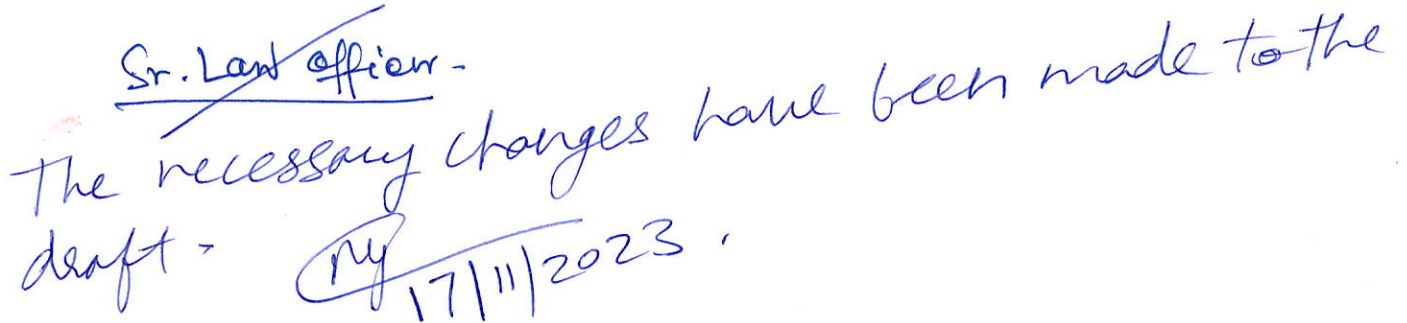 Sr. Law officer.
The necessary changes have been made to the
draft.
17/11/2023.